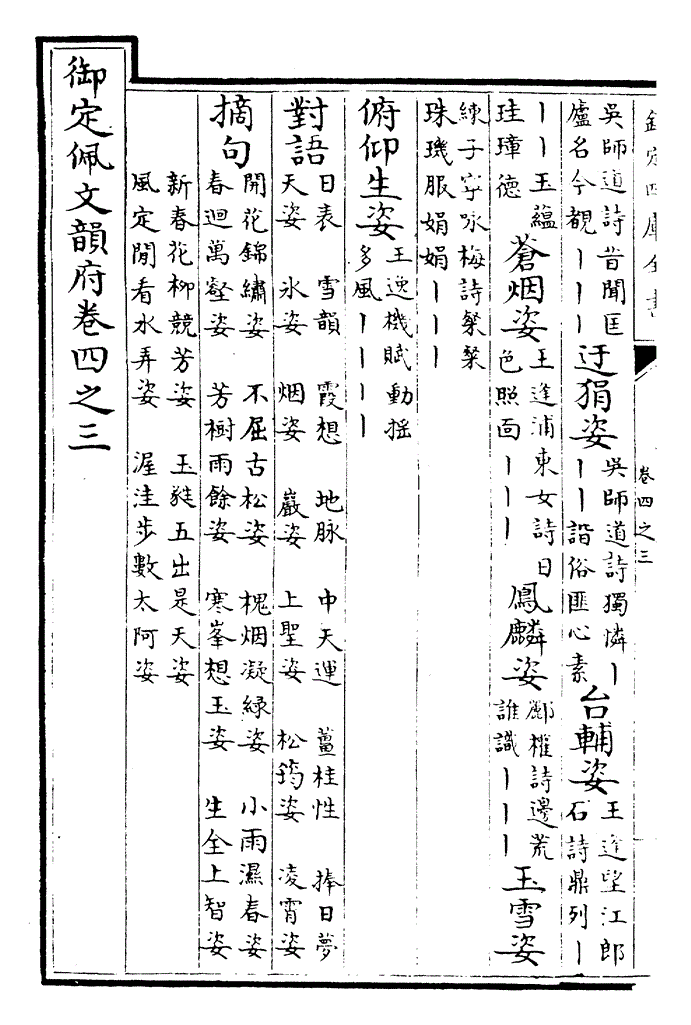 欽定四庫全書
卷四之三
吳師道詩昔聞匡
廬名今覩丨丨丨
迂狷姿
吳師道詩獨憐丨
丨丨諧俗匪心素
台輔姿
王逢望江郎
石詩鼎列丨
丨丨玉蘊
珪璋德
蒼烟姿
王逢浦東女詩日
色照面丨丨丨
鳳麟姿
酈權詩邊荒
誰識丨丨丨
玉雪姿
練子寧咏梅詩粲粲
珠璣服娟娟丨丨丨
俯仰生姿
王逸機賦動摇
多風丨丨丨丨
對語
日表 雪韻 霞想 地脉 中天運 薑桂性 捧日夢
天姿 氷姿 烟姿 巖姿 上聖姿 松筠姿 凌霄姿
摘句
開花錦繡姿 不屈古松姿 槐烟凝緑姿 小雨濕春姿
春迴萬壑姿 芳樹雨餘姿 寒峯想玉姿 生全上智姿
新春花柳競芳姿 玉蕤五出是天姿
風定閒看水弄姿 渥洼步驟太阿姿
御定佩文韻府卷四之三